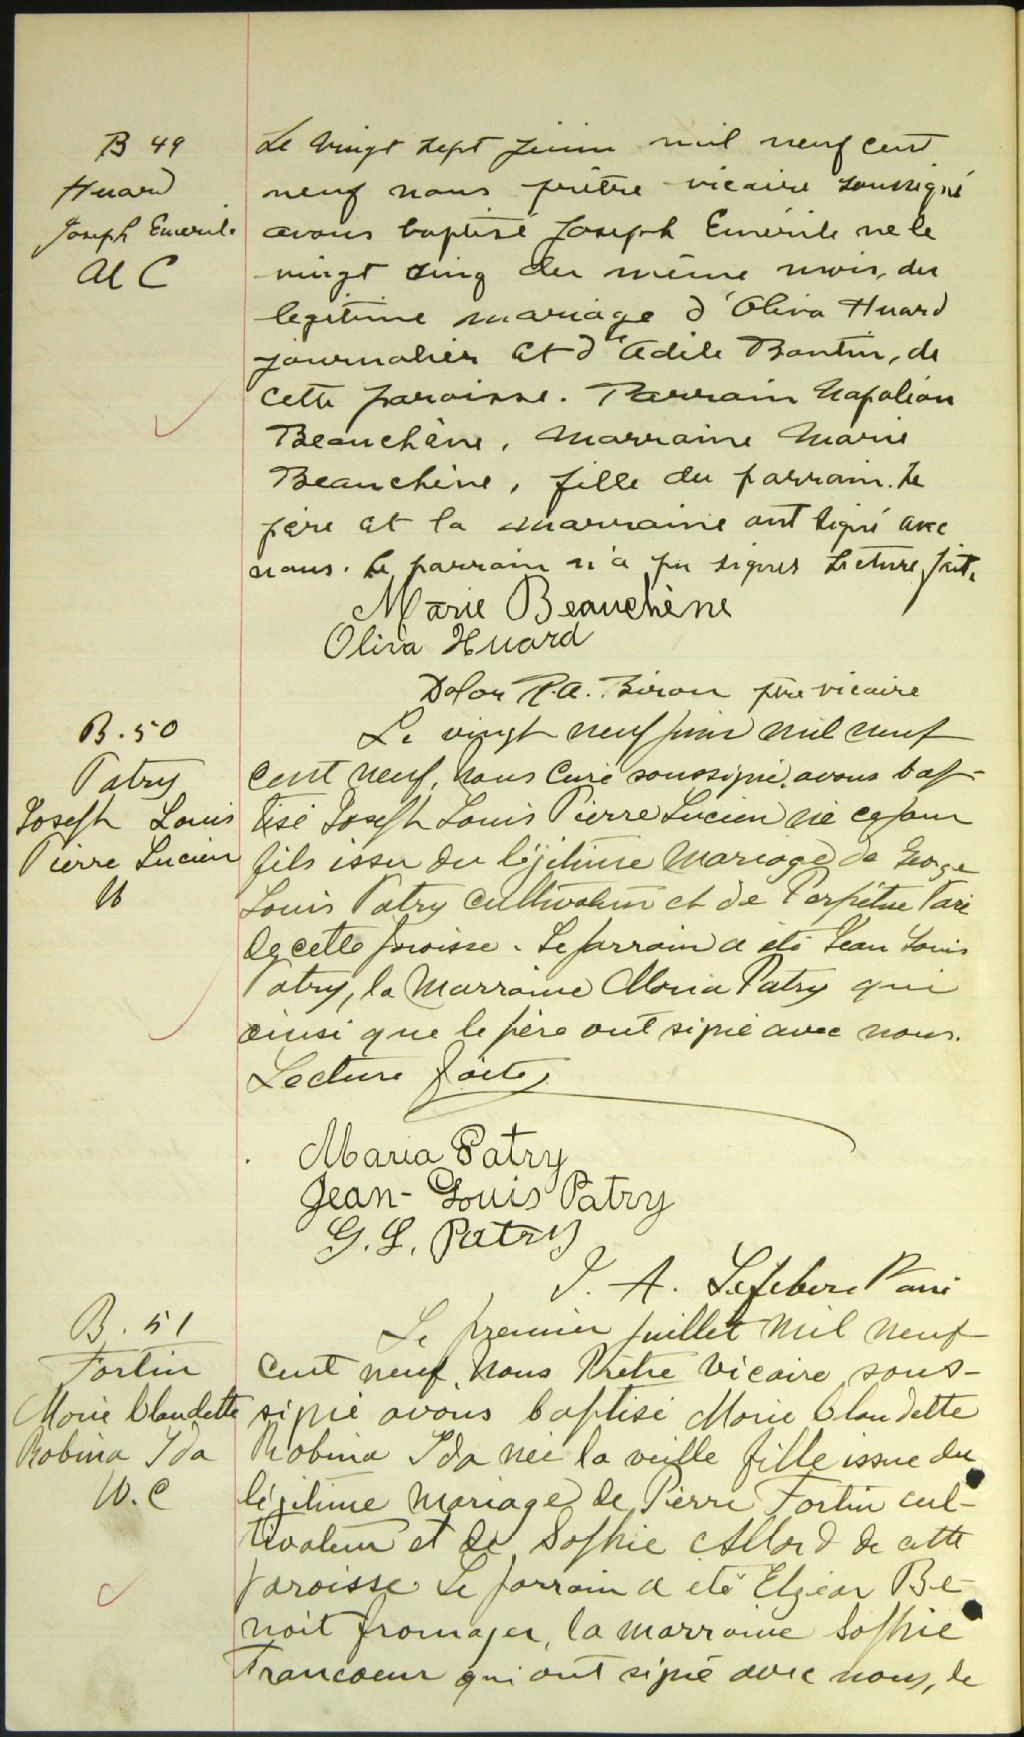 B 49
Huard
Joseph Émérile
Le vingt sept juin mil neuf cent
neuf nous prêtre vicaire soussigné
avons baptisé Joseph Émérile né le
vingt cinq du même mois, du
légitime mariage d'Oliva Huard
journalier et d'Adèle Bontin, de
cette paroisse. Parrain Napoléon
Beauchène, Marraine Marie
Beauchène, fille du parrain. Le
père et la marraine ont signé avec
nous. Le parrain n'a pu signer Lecture faite
Marie Beauchène
Oliva Huard
Dolor R.A. Biron ptre vicaire
B. 50
Patry
Joseph Louis
Pierre Lucien
Le vingt neuf juin mil neuf
cent neuf, nous curé soussigné, avons bap-
tisé Joseph Louis Pierre Lucien né ce jour
fils issu du légitime mariage de George
Louis Patry cultivateur et de Perpétue Paré
de cette paroisse. Le parrain a été Jean Louis
Patry, la Marraine Maria Patry qui
ainsi que le père ont signé avec nous.
Lecture faite,
Maria Patry
Jean-Louis Patry
G. L. Patry
J. A. Lefebvre
B. 51
Fortin
Marie Claudette
Robina Ida
W. C
Le premier juillet mil neuf
cent neuf, Nous Prêtre Vicaire sous-
signé avons baptisé Marie Claudette
Robina Ida née la veille fille issue du
légitime mariage de Pierre Fortin cul-
tivateur et de Sophie Allard de cette
paroisse. Le parrain a été Elzéar Be-
noit fromager, la marraine Sophie
Francoeur qui ont signé avec nous, le